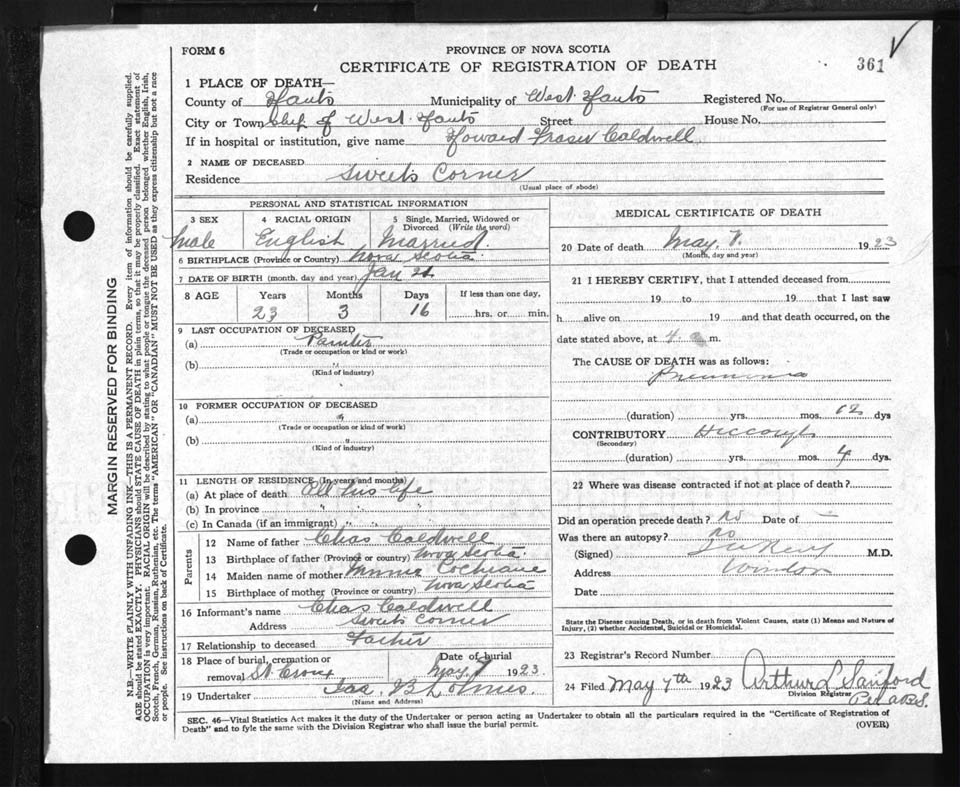 FORM 6
PROVINCE OF NOVA SCOTIA
CERTIFICATE OF REGISTRATION OF DEATH
361
1 PLACE OF DEATH—
County of Hants Municipality of West Hants Registered No.
(For use of Registrar General only)
City or Town Ship of West Hants Street House No.
If in hospital or institution, give name Howard Fraser Caldwell
2 NAME OF DECEASED
Residence Sweets Corner
(Usual place of abode)
PERSONAL AND STATISTICAL INFORMATION
3 SEX 4 RACIAL ORIGIN 5 Single, Married, Widowed or Divorced (Write the word)
Male English Married
6 BIRTHPLACE (Province or Country) Nova Scotia
7 DATE OF BIRTH (month, day and year) Jan 21
8 AGE Years Months Days If less than one day,
23 3 16 hrs. or min.
9 LAST OCCUPATION OF DECEASED
(a) Painter
(Trade or occupation or kind or work)
(b) "
(Kind of industry)
10 FORMER OCCUPATION OF DECEASED
(a) "
(Trade or occupation or kind of work)
(b) "
(Kind of industry)
11 LENGTH OF RESIDENCE (In years and months)
(a) At place of death All his life
(b) In province " "
(c) In Canada (if an immigrant) " "
Parents
12 Name of father Chas Caldwell
13 Birthplace of father (Province or country) Nova Scotia
14 Maiden name of mother Minnie Cochrane
15 Birthplace of mother (Province or country) Nova Scotia
16 Informant's name Chas Caldwell
Address Sweets Corner
17 Relationship to deceased Father
18 Place of burial, cremation or removal St Croix Date of burial May 9 1923
19 Undertaker Jas. B Lolmes.
(Name and Address)
MEDICAL CERTIFICATE OF DEATH
20 Date of death May 7. 1923
(Month, day and year)
21 I HEREBY CERTIFY, that I attended deceased from
19 to 19 that I last saw
h alive on 19 and that death occurred, on the
date stated above, at 4 m.
The CAUSE OF DEATH was as follows:
Pneumonia
(duration) yrs. mos. 12 dys
CONTRIBUTORY Hiccough
(Secondary)
(duration) yrs. mos. 4 dys.
22 Where was disease contracted if not at place of death?
Did an operation precede death? no Date of —
Was there an autopsy? no
(Signed) M.D.
Address Windsor
Date
State the Disease causing Death, or in death from Violent Causes, state (1) Means and Nature of
Injury, (2) whether Accidental, Suicidal or Homicidal.
23 Registrar's Record Number
24 Filed May 7th 1923 Arthur L Sanford
Division Registrar
SEC. 46—Vital Statistics Act makes it the duty of the Undertaker or person acting as Undertaker to obtain all the particulars required in the "Certificate of Registration of
Death" and to fyle the same with the Division Registrar who shall issue the burial permit. (OVER)
MARGIN RESERVED FOR BINDING
N.B.—WRITE PLAINLY WITH UNFADING INK—THIS IS A PERMANENT RECORD. Every item of information should be carefully supplied.
AGE should be stated EXACTLY. PHYSICIANS should STATE CAUSE OF DEATH in plain terms, so that it may be properly classified. Exact statement of
OCCUPATION is very important. RACIAL ORIGIN will be described by stating to what people or tongue the deceased person belonged whether English, Irish,
Scotch, French, German, Russian, Ruthenian, etc. The terms "AMERICAN" OR "CANADIAN" MUST NOT BE USED as they express citizenship but not a race
or people. See instructions on back of Certificate.